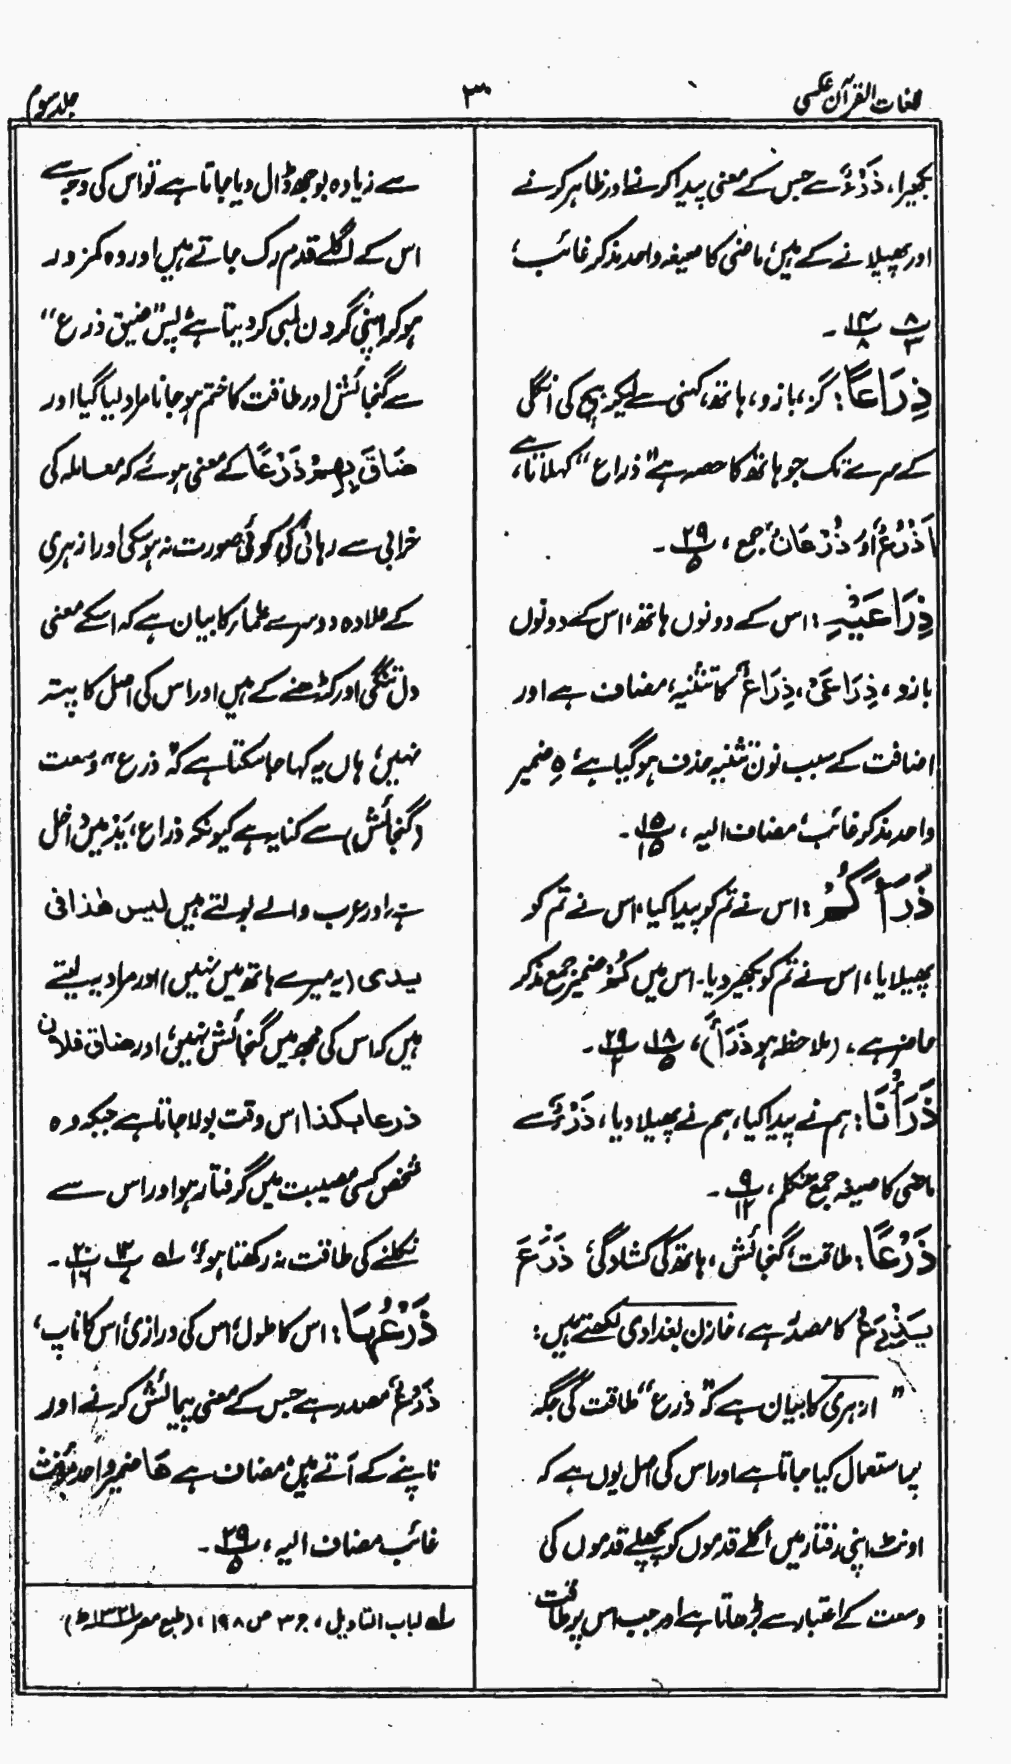 لغات القرآن عکسی
۳۰
جلد سوم
بکھیرا، ذَرْءٌ سے جس کے معنی پیدا کرنے اور ظاہر کرنے
اور پھیلانے کے ہیں، ماضی کا صیغہ واحد مذکر غائب،
۸/۳ ۱۴/۸ -
ذِرَاعًا: گز، بازو، ہاتھ، کہنی سے لیکر بیچ کی انگلی
کے سرے تک جو ہاتھ کا حصہ ہے "ذراع" کہلاتا ہے،
اَذْرُعٌ اور ذُرْعَانٌ جمع، ۲۹/۵ -
ذِرَاعَیْہِ: اس کے دونوں ہاتھ، اس کے دونوں
بازو، ذِرَاعَیْ، ذِرَاعٌ کا تثنیہ، مضاف ہے اور
اضافت کے سبب نون تثنیہ حذف ہوگیا ہے، ہٖ ضمیر
واحد مذکر غائب، مضاف الیہ، ۱۵/۱۵ -
ذَرَاَکُمْ: اس نے تم کو پیدا کیا، اس نے تم کو
پھیلایا، اس نے تم کو بکھیر دیا۔ اس میں کُمْ ضمیر جمع مذکر
حاضر ہے، (ملاحظہ ہو ذَرَأَ)، ۱۸/۵، ۲۹/۲ -
ذَرَأْنَا: ہم نے پیدا کیا، ہم نے پھیلا دیا، ذَرْءٌ سے
ماضی کا صیغہ جمع متکلم، ۹/۱۲ -
ذَرْعًا: طاقت، گنجائش، ہاتھ کی کشادگی، ذَرَعَ
یَذْرَعُ کا مصدر ہے، خازن بغدادی لکھتے ہیں:
"ازہری کا بیان ہے کہ "ذرع" طاقت کی جگہ
پر استعمال کیا جاتا ہے اور اس کی اصل یوں ہے کہ
اونٹ اپنی رفتار میں اگلے قدموں کو پچھلے قدموں کی
وسعت کے اعتبار سے بڑھاتا ہے اور جب اس پر طاقت
سے زیادہ بوجھ ڈال دیا جاتا ہے تو اس کی وجہ سے
اس کے اگلے قدم رک جاتے ہیں اور وہ کمزور
ہوکر اپنی گردن لمبی کر دیتا ہے، پس "ضیق ذرع"
سے گنجائش اور طاقت کا ختم ہو جانا مراد لیا گیا اور
ضَاقَ بِھِمْ ذَرْعًا کے معنی ہوئے کہ معاملہ کی
خرابی سے رہائی کی کوئی صورت نہ ہوسکی اور ازہری
کے علاوہ دوسرے علماء کا بیان ہے کہ اسکے معنی
دل تنگی اور کڑھنے کے ہیں اور اس کی اصل کا پتہ
نہیں، ہاں یہ کہا جا سکتا ہے کہ "ذرع" وسعت
(گنجائش) سے کنایہ ہے کیونکہ ذراع، یَدْ میں داخل
ہے اور عرب والے بولتے ہیں لیس ھٰذا فی
یدی (یہ میرے ہاتھ میں نہیں) اور مراد یہ لیتے
ہیں کہ اس کی مجھ میں گنجائش نہیں، اور ضاق فلان
ذرعا بکذا اس وقت بولا جاتا ہے جبکہ وہ
شخص کسی مصیبت میں گرفتار ہو اور اس سے
نکلنے کی طاقت نہ رکھتا ہو،" لہ ۱۲/۷ ۲۰/۱۶ -
ذَرْعُہَا: اس کا طول، اس کی درازی، اس کا ناپ،
ذَرْعٌ مصدر ہے جس کے معنی پیمائش کرنے اور
ناپنے کے آتے ہیں، مضاف ہے ھَا ضمیر واحد مؤنث
غائب مضاف الیہ، ۲۹/۵ -
لہ لباب التاویل، جز ۳ ص ۱۹۸، (طبع مصر ۱۳۳۱ھ)